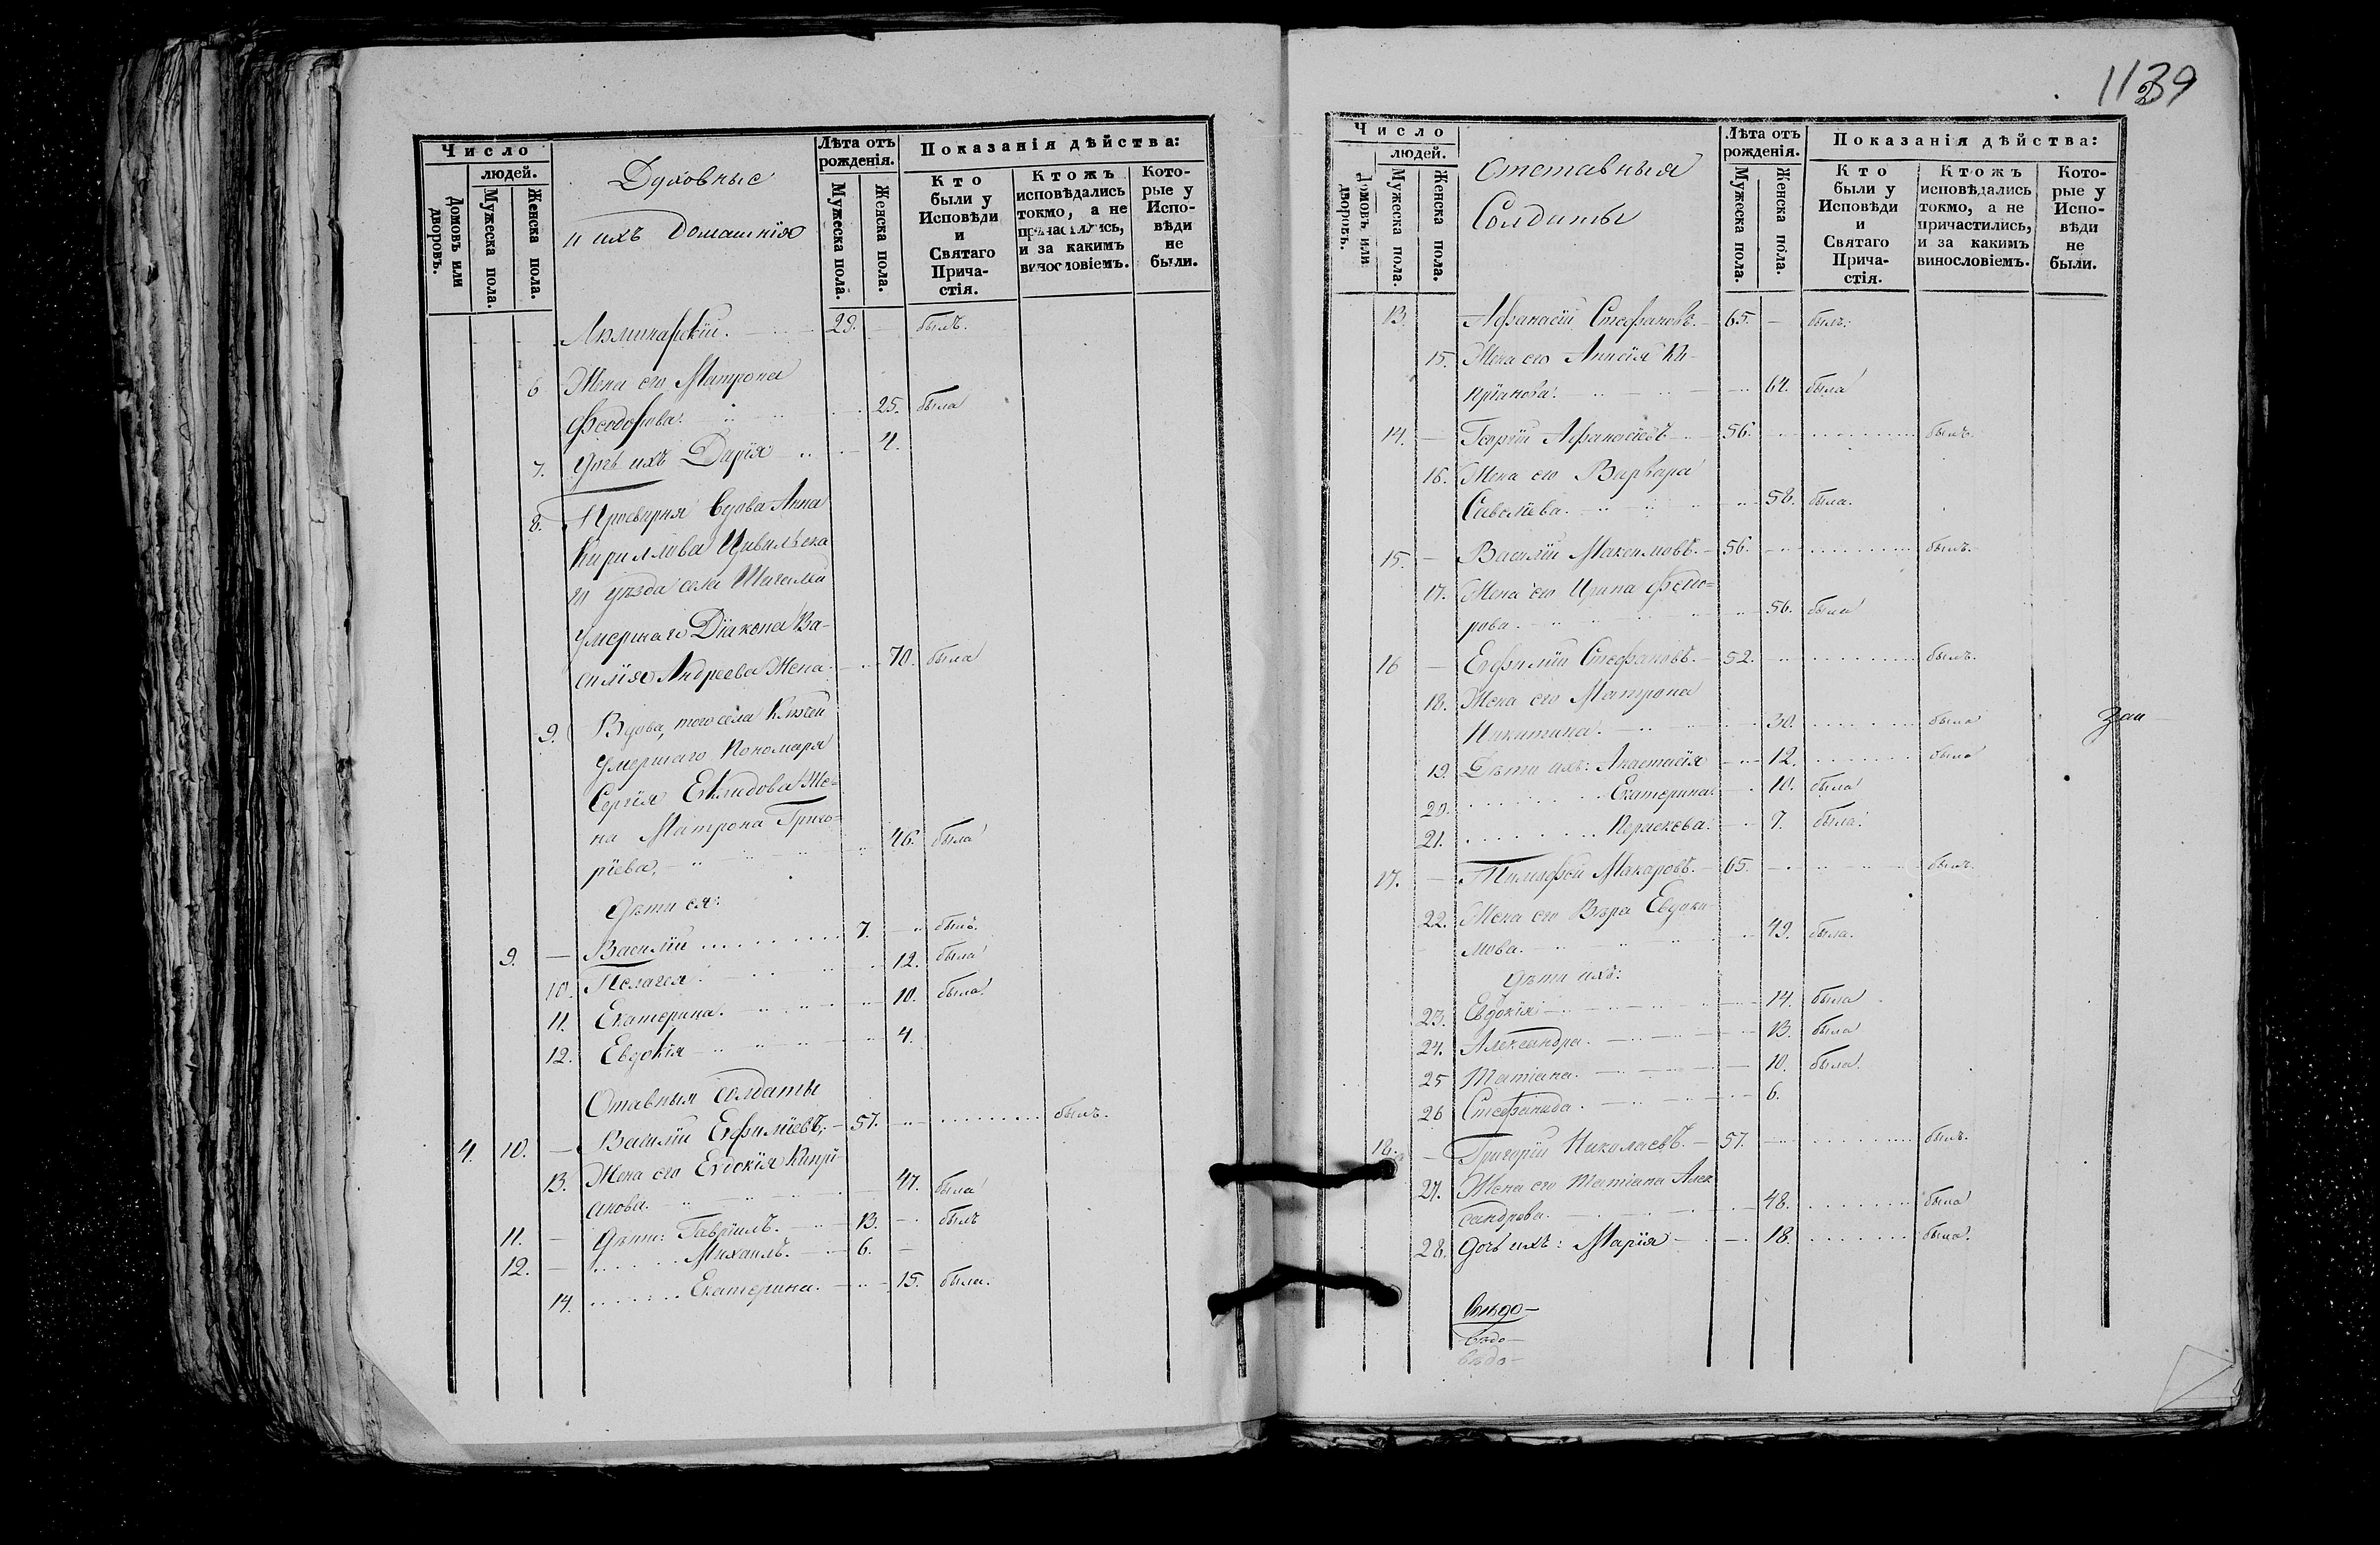 Число
людей.
Домовъ или дворовъ.
Мужеска пола.
Женска пола.
Духовные
и ихъ домашнія
Лѣта отъ рожденія.
Мужеска пола.
Женска пола.
Показанія дѣйства:
Кто были у Исповѣди и Святаго Причастія.
Ктожъ исповѣдались токмо, а не причастились, и за какимъ винословіемъ.
Которые у Исповѣди не были.
29. былъ.
6 Жена его Матрона
Феодорова. 25. была
7. Дочь ихъ Дарія 4.
8. Просвирня вдова Анна
Кириллова Цивильска
го уѣзда села
умершаго Діакона Ва-
силія Андреева Жена 70. была
9. Вдова, того села Ключей
умершаго Пономаря
Сергія Же-
на Матрона Григо-
ріева, 46. была
Дѣти ея:
9. Василій 7. былъ.
10. Пелагея 12. была
11. Екатерина. 10. была
12. Евдокія 4.
Отавныя солдаты
4. 10. Василій Ефиміевъ, 57. былъ.
13. Жена его Евдокія Кипрі-
анова. 47. была
11. Дѣти: Гавріилъ. 13. былъ
12. Михаилъ. 6.
14. Екатерина. 15. была.
1139
Число
людей.
Домовъ или дворовъ.
Мужеска пола.
Женска пола.
Отставныя
Солдаты
Лѣта отъ рожденія.
Мужеска пола.
Женска пола.
Показанія дѣйства:
Кто были у Исповѣди и Святаго Причастія.
Ктожъ исповѣдались токмо, а не причастились, и за какимъ винословіемъ.
Которые у Исповѣди не были.
13. Афанасій Стефановъ. 65. былъ.
15. Жена его Анисія Ки-
пріанова. 64. была
14. Георгій Афанасіевъ 56. былъ.
16. Жена его Варвара
Савеліева. 58. была.
15. Василій Максимовъ. 56. былъ.
17. Жена его Ирина Фео-
рова. 56. была
16 Ефимій Стефановъ. 52. былъ.
18. Жена его Матрона
Никитина. 30. была
19. Дѣти ихъ: Анастасія 12. была
20. Екатерина. 10. была
21. Параскева. 7. была.
17. Тимофей Макаровъ. 65. былъ.
22. Жена его Вѣра Евдоки-
мова. 49. была.
Дѣти ихъ:
23. Евдокія 14. была
24. Александра. 13. была
25 Татіана. 10. была.
26 Стефанида. 6.
18. Григорій Николаевъ. 57. былъ.
27. Жена его Татіана Алек
сандрова. 48. была
28. Дочь ихъ: Марія 18. была.
вѣдо-
вѣдо-